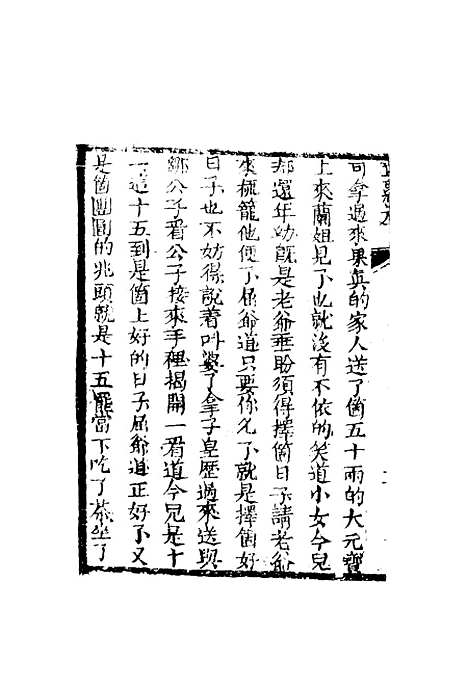 司拿過來果真的家人送了箇五十兩的大元寶
上來蘭姐見了也就沒有不依的笑道小女今兒
却還年幼旣是老爺垂盼須得擇箇日子請老爺
來梳籠他便了屈爺道只要你允了就是擇箇好
日子也不妨得說着叫婆子拿了皇歷過來送與
鄒公子看公子接來手裡揭開一看道今兒是十
一這十五到是箇上好的日子屈爺道正好了又
是箇團圓的兆頭就是十五罷當下吃了茶坐了